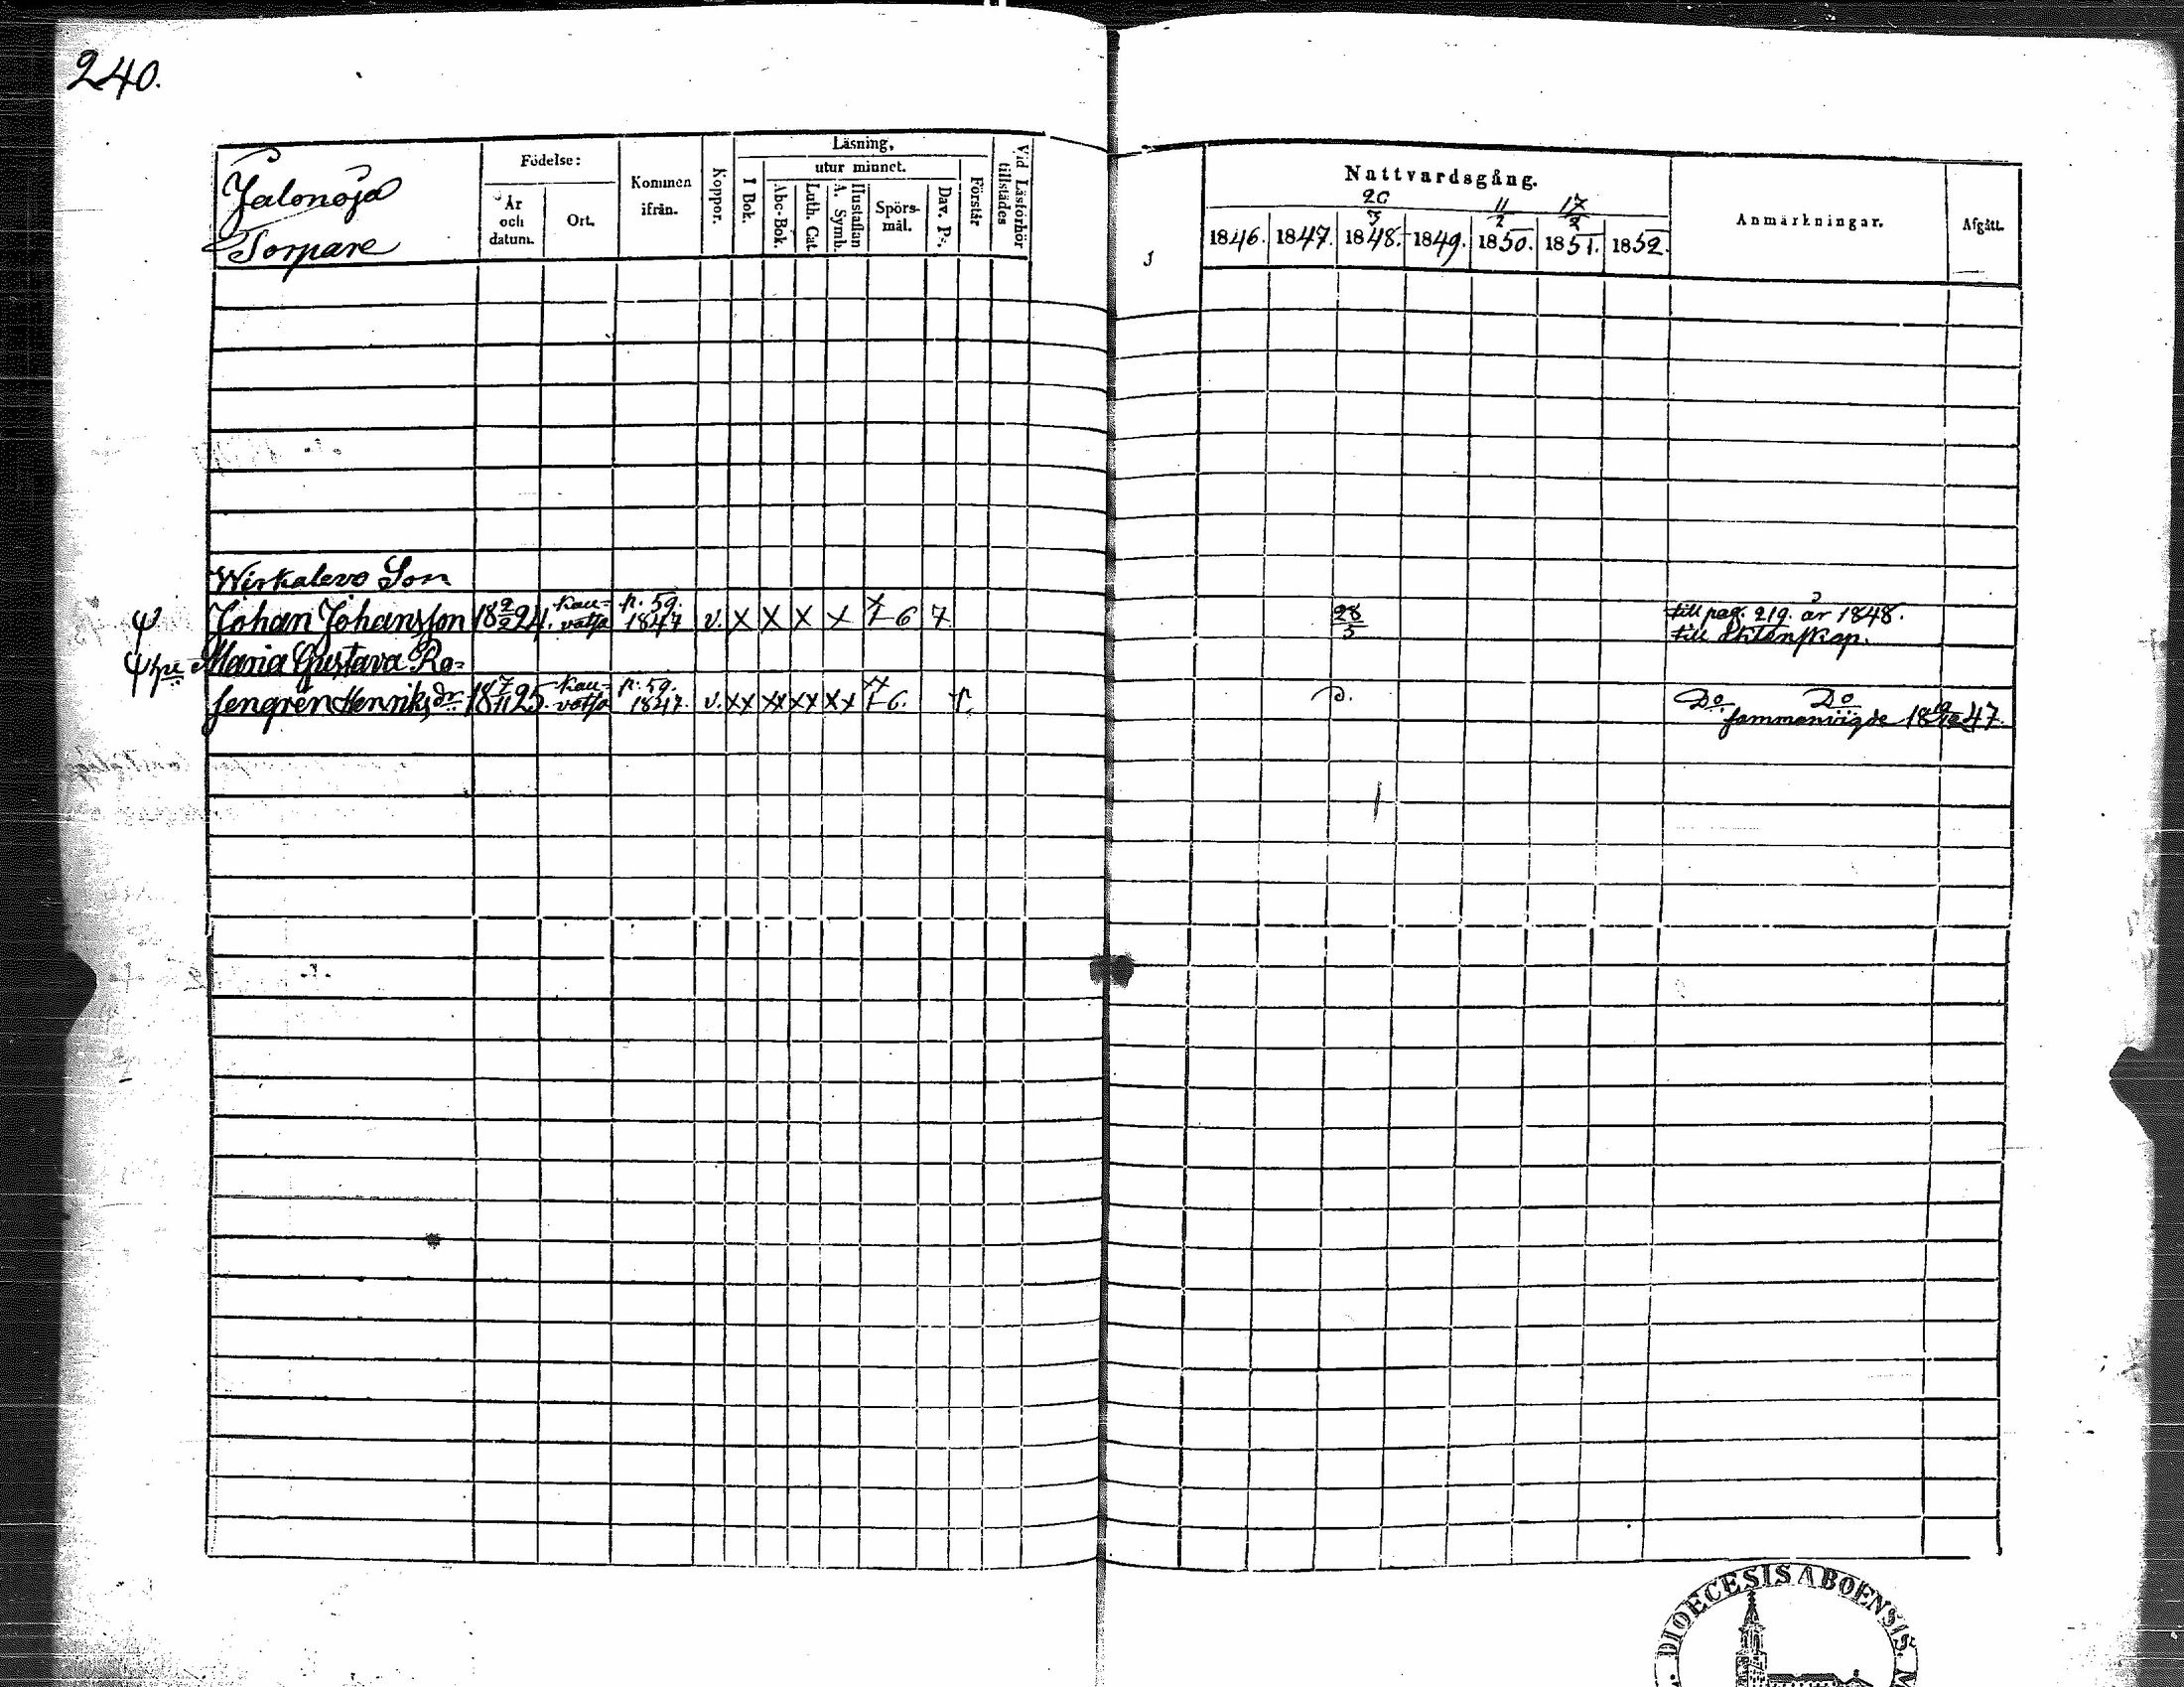 240.
Jalonoja
Torpare
Födelse:
År och datum.
Ort.
Kommen ifrån.
Koppor.
Läsning,
utur minnet.
I Bok.
Abc-Bok.
Luth. Cat.
Hustaflan A. Symb.
Spörsmål.
Dav. Ps.
Förstår
Vid Läsförhör tillstädes
Nattvardsgång.
20/3 11/2 17/2
1846. 1847. 1848. 1849. 1850. 1851. 1852.
Anmärkningar.
Afgått.
Wirkalevo Son
Johan Johansson 18 2/2 24. Kauvatsa p. 59. 1847 v. X X X X X 1-6 7. 28/5 till pag. 219. år 1848.
till Äktenskap.
Maria Gustava Ro=
sengrén Henriksdr 18 7/11 25. Kauvatsa p. 59. 1847. v. XX XX XX XX XX 1-6. D. Do Do
sammanvigde 18 19/12 47.
DIOECESIS ABOENSIS.